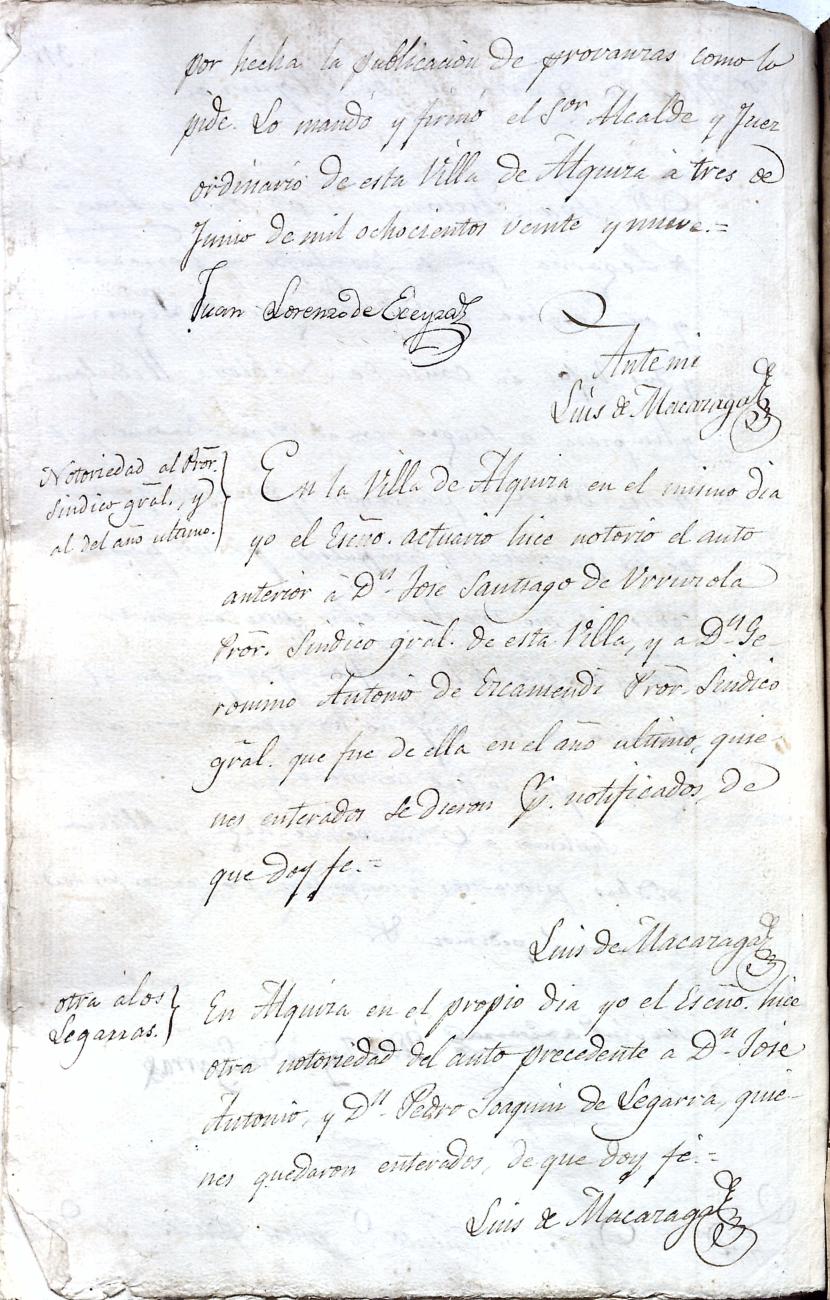 por hecha la publicacion de provanzas como lo
pide. Lo mandó y firmó el Sor. Alcalde y Juez
ordinario de esta Villa de Alquiza à tres de
Junio de mil ochocientos veinte y nueve.=
Juan Lorenzo de
Ante mi
Luis de Macazaga
Notoriedad al Pror.
Sindico gral., y
al del año ultimo.
En la Villa de Alquiza en el mismo dia
yo el Esño. actuario hice notorio el auto
anterior à Dn. José Santiago de Urruzola
Pror. Sindico gral. de esta Villa, y a Dn. Ge-
ronimo Antonio de Ercamendi Pror. Sindico
gral. que fue de ella en el año ultimo, quie-
nes enterados se dieron pr. notificados, de
que doy fe.=
Luis de Macazaga
otra à los
Legarras.
En Alquiza en el propio dia yo el Esño. hice
otra notoriedad del auto precedente à Dn. José
Antonio, y Dn. Pedro Joaquin de Legarra, quie-
nes quedaron enterados, de que doy fé.=
Luis de Macazaga